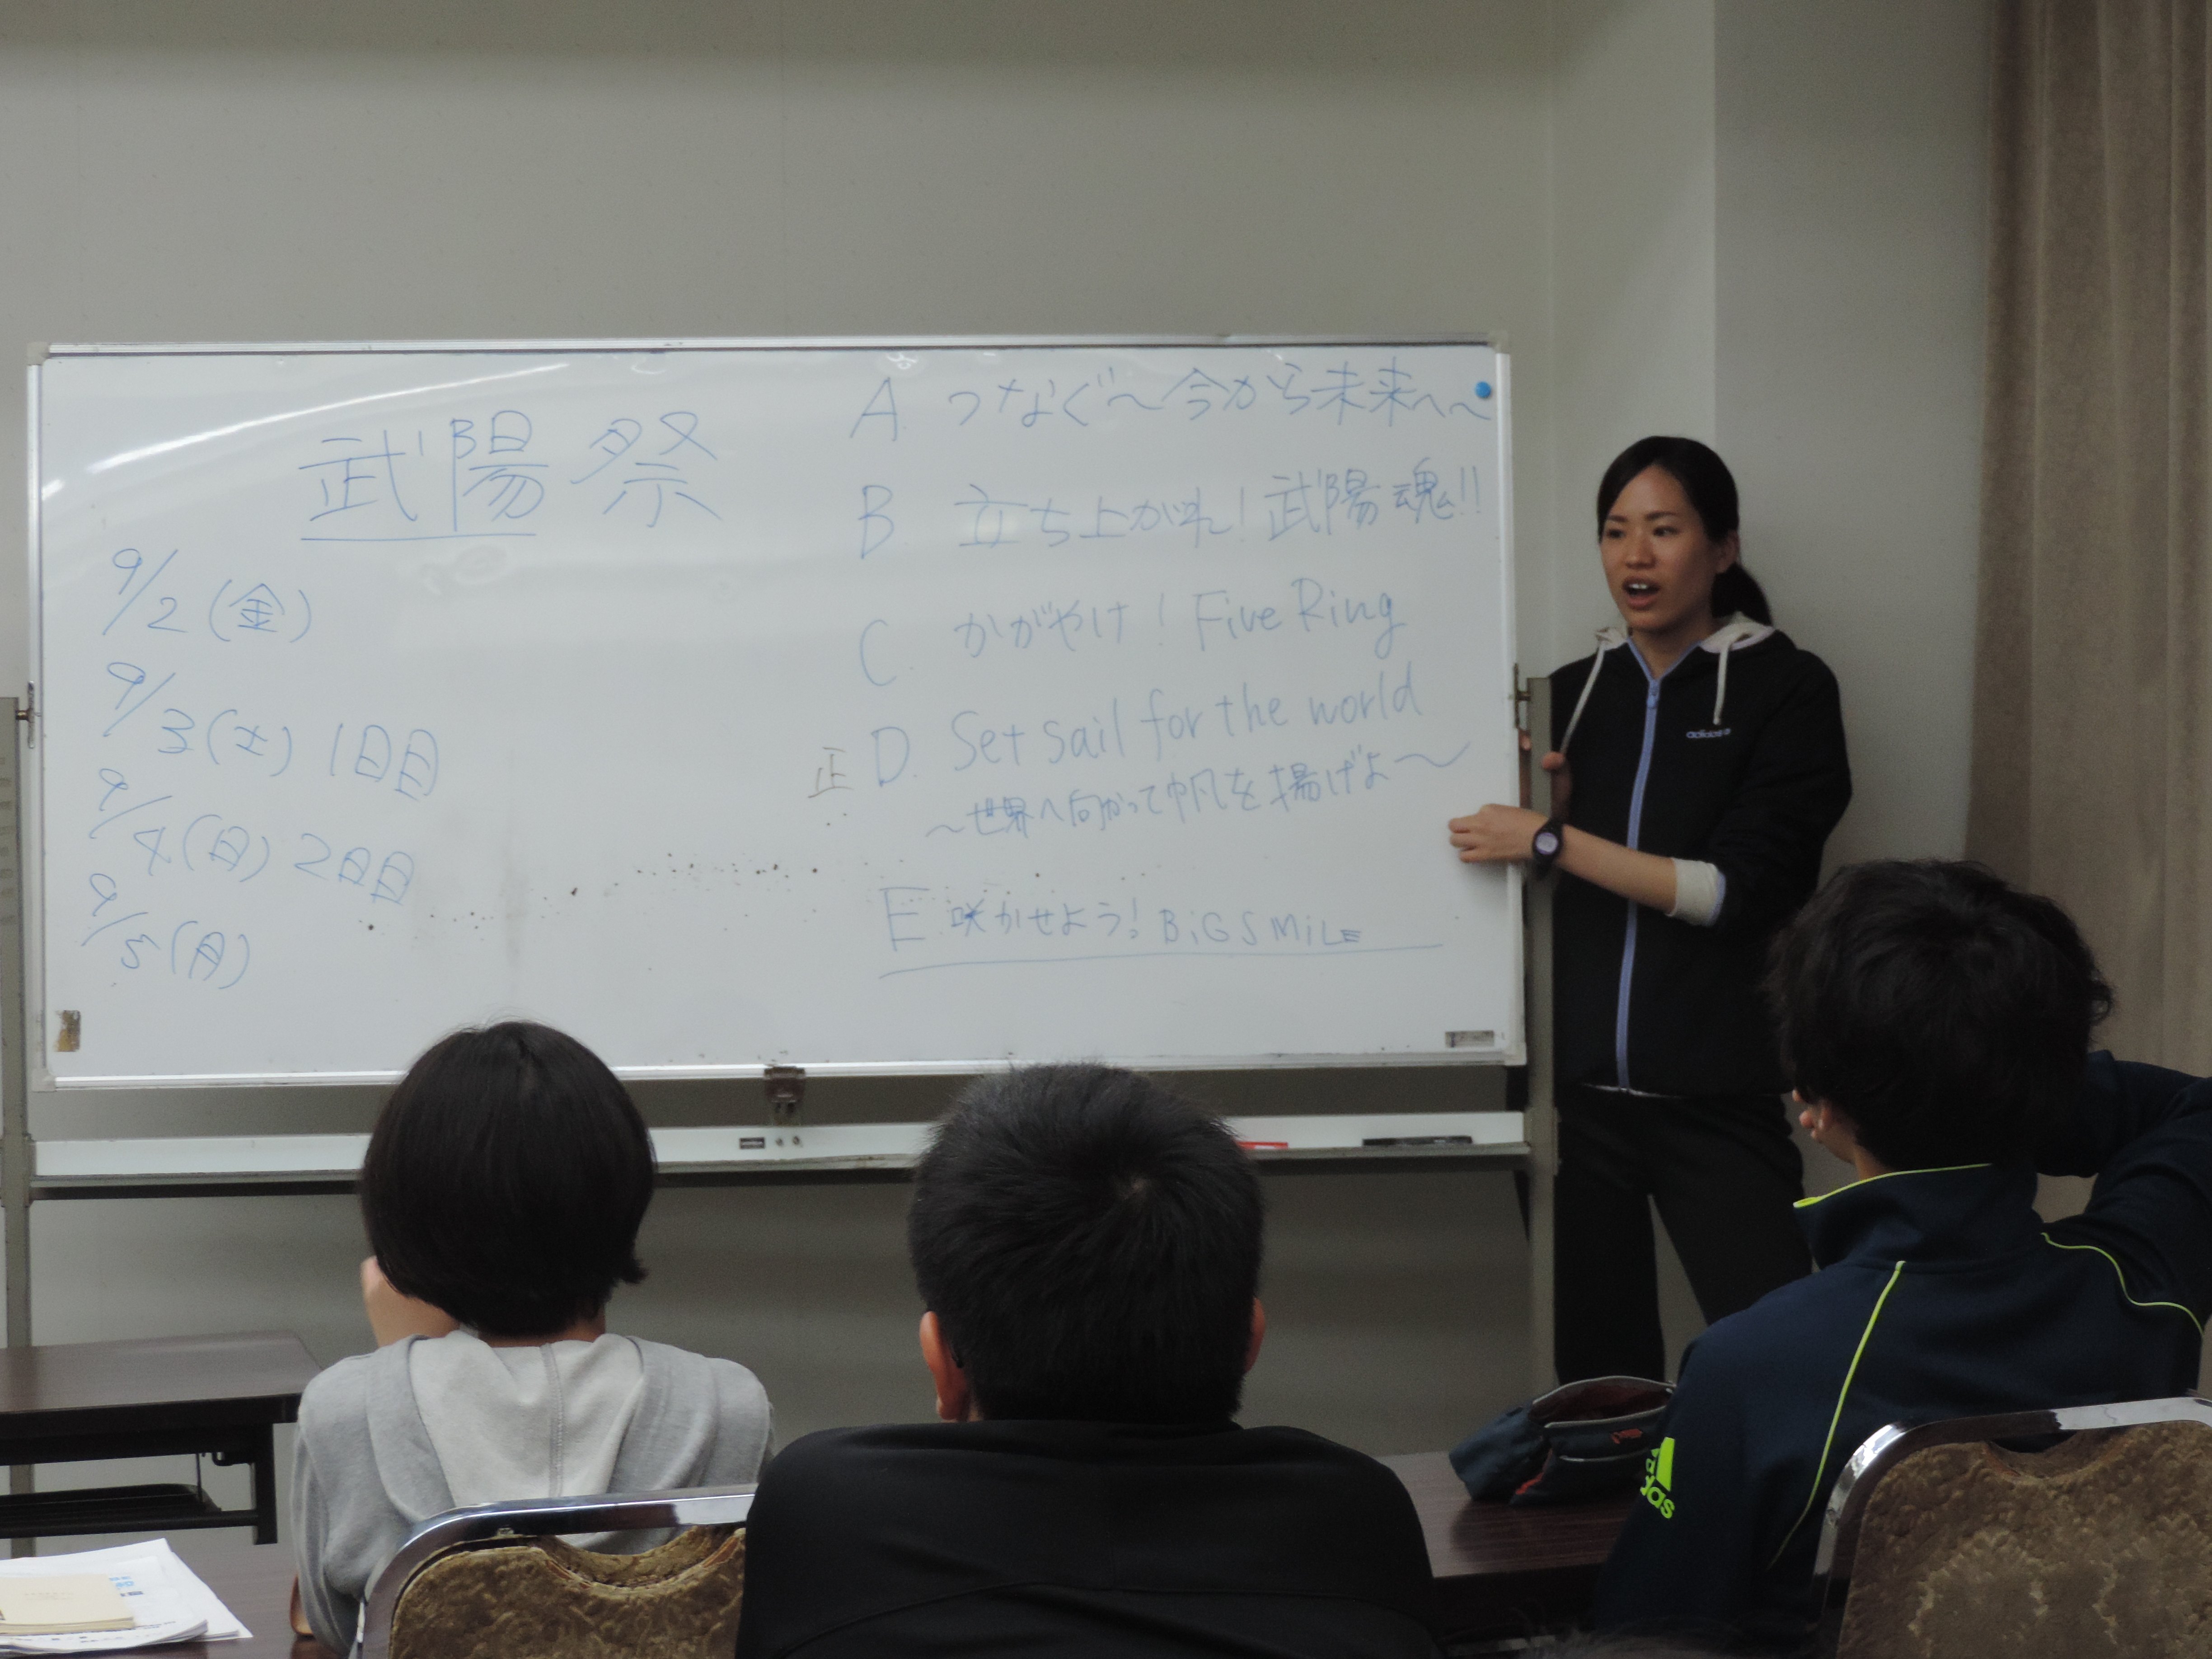 武陽祭
9/2(金)
9/3(土) 1日目
9/4(日) 2日目
9/5(月)
A. つなぐ〜今から未来へ〜
B. 立ち上がれ! 武陽魂!!
C. かがやけ! Five Ring
正 D. Set sail for the world
〜世界へ向かって帆を揚げよ〜
E. 咲かせよう! BiG SMiLE
adidas